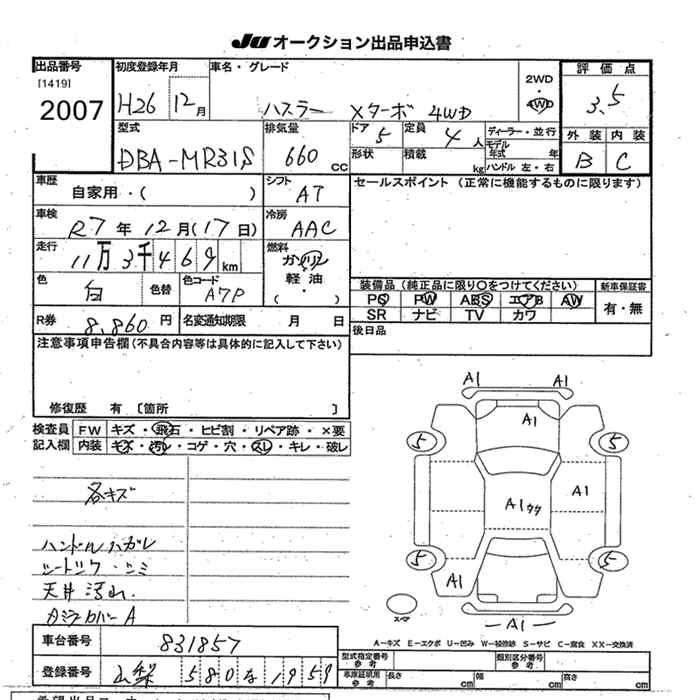 JU オークション出品申込書
出品番号 初度登録年月 車名・グレード 評価点
[1419] 2WD
2007 H26 12月 ハスラー Xターボ 4WD ・4WD 3.5
型式 排気量 ドア 定員 ディーラー・並行 外装 内装
DBA-MR31S 660cc 5 4人 モデル年式 年 B C
形状 積載 kg ハンドル 左・右
車歴 シフト セールスポイント (正常に機能するものに限ります)
自家用・( ) AT
車検 冷房
R7年12月(17日) AAC
走行 燃料
11万3千469km ガソリン
軽油
( ・ )
色 色替 色コード 装備品 (純正品に限り○をつけてください) 新車保証書
白 A7P PS PW ABS エアB AW 有・無
SR ナビ TV カワ
R券 8,860円 名変通知期限 月 日 後日品
注意事項申告欄(不具合内容等は具体的に記入して下さい)
修復歴 有 〔箇所 〕
検査員 FW キズ・飛石・ヒビ割・リペア跡・×要
記入欄 内装 キズ・汚れ・コゲ・穴・スレ・キレ・破レ
各キズ
ハンドルハガレ
シミ
天井汚れ.
A
A1 A1
A1
5 5
A1ウク A1
5 5
A1
スペア
A1
A-キズ E-エクボ U-凹み W-補修跡 S-サビ C-腐食 XX-交換済
車台番号 831857 型式指定番号 参考 類別区分番号 参考
登録番号 山梨 580 な 1959 車庫証明用 参考 長さ cm 幅 cm 高さ cm